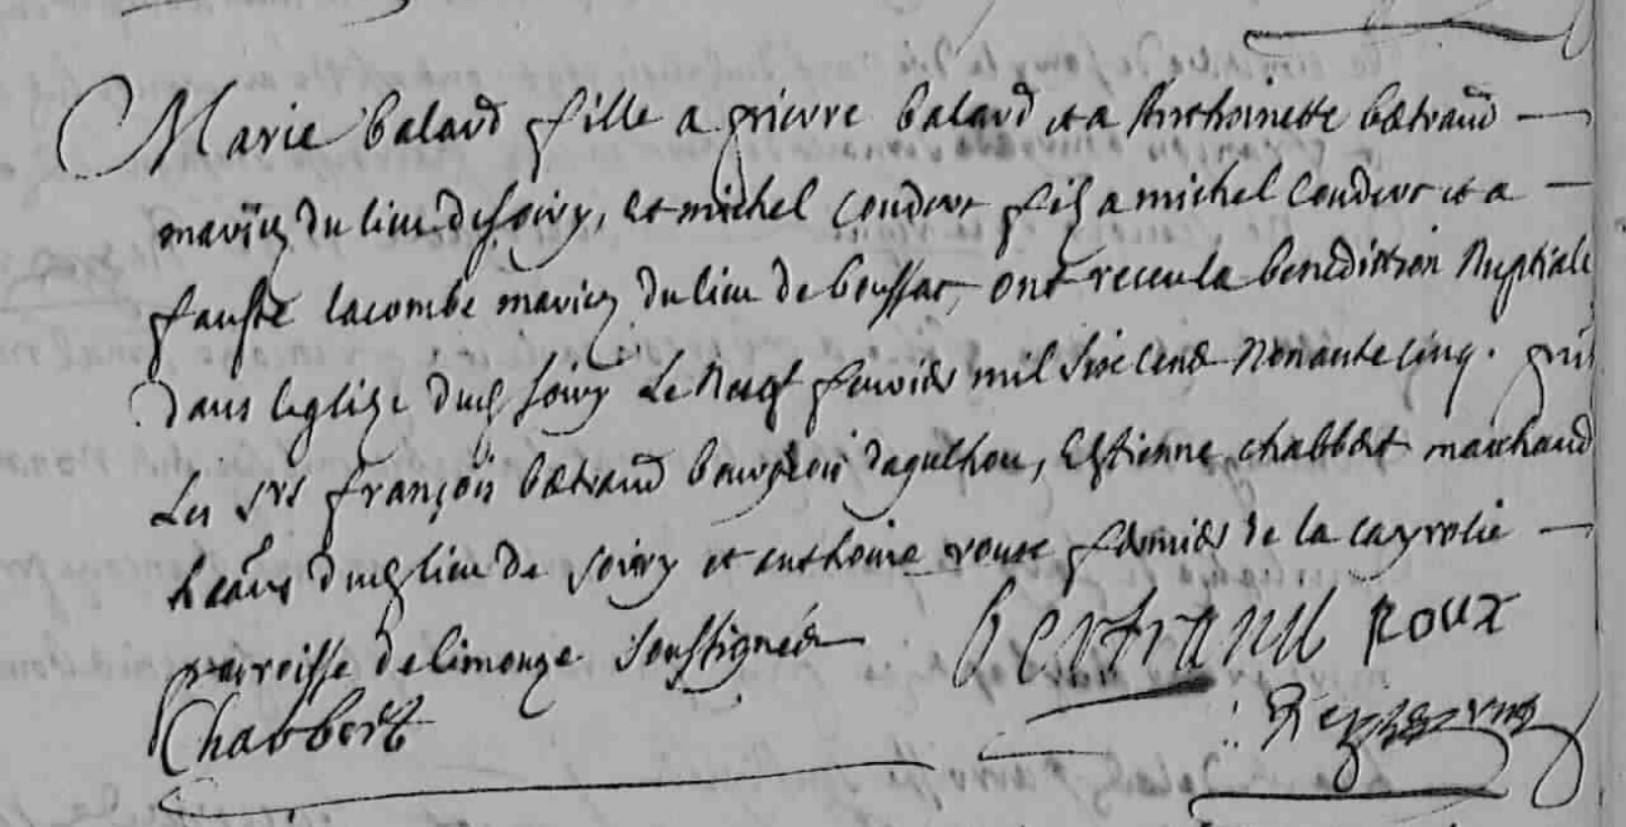 Marie balard fille a pierre balard et a Anthoinette bertrand
mariez du lieu de soiry, et michel couderc filz a michel Couderc et a
fauste lacombe mariez du lieu de boussac, ont receu la benediction Nuptiale
dans leglize dud soiry Le Neuf fevrier mil Sixe Cens Nonante cinq.
Les srs françois bertrand bourgeois daguthou, Estienne chabbert marchand
du lieu de soiry et anthoine roux fermier de la cayrolie
parroisse de limouze Soussignés bertrand Roux
Chabbert